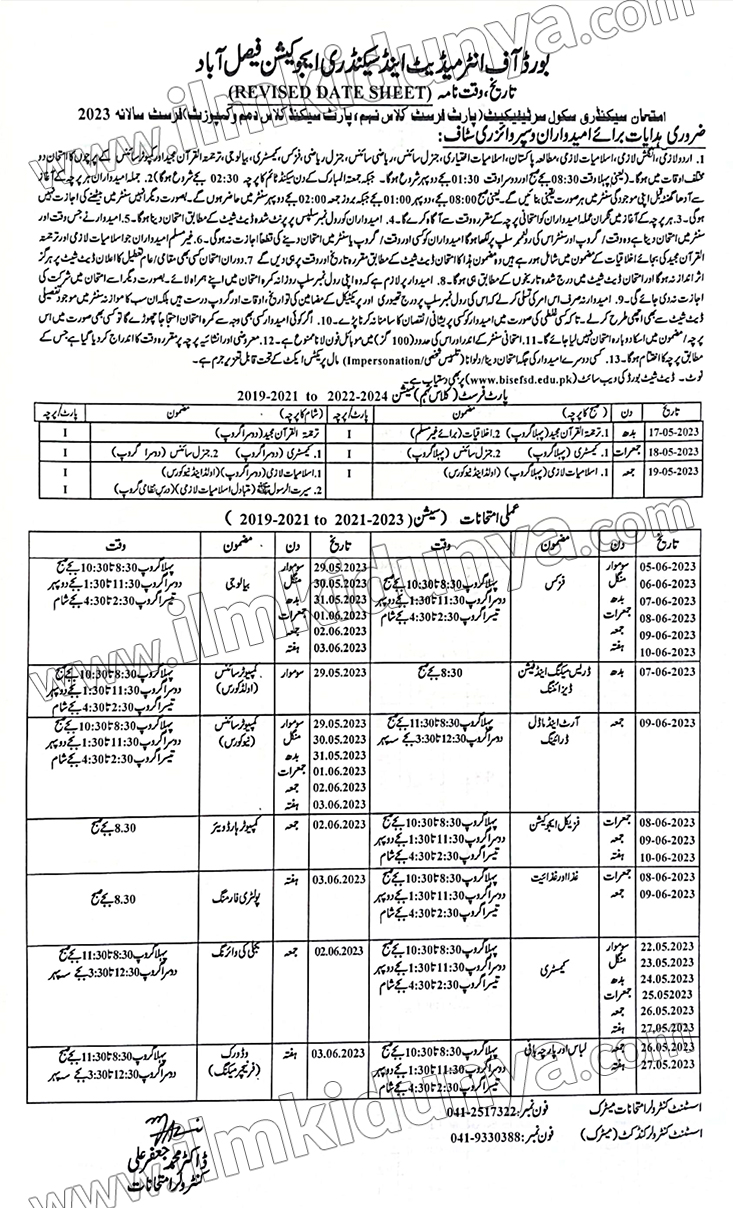 بورڈ آف انٹرمیڈیٹ اینڈ سیکنڈری ایجوکیشن فیصل آباد
تاریخ، وقت نامہ (REVISED DATE SHEET)
امتحان سیکنڈری سکول سرٹیفیکیٹ (پارٹ فرسٹ کلاس نہم، پارٹ سیکنڈ کلاس دہم و کمپوزٹ) فرسٹ سالانہ 2023
ضروری ہدایات برائے امیدواران و سپروائزری سٹاف:
1. اردو لازمی، انگلش لازمی، اسلامیات لازمی، مطالعہ پاکستان، اسلامیات اختیاری، جنرل سائنس، ریاضی سائنس، جنرل ریاضی، فزکس، کیمسٹری، بیالوجی، ترجمۃ القرآن مجید اور کمپیوٹر سائنس کے پرچوں کا امتحان دو
مختلف اوقات میں ہوگا۔ (یعنی پہلا وقت صبح 08:30 بجے شروع اور دوسرا وقت 01:30 بجے دوپہر شروع ہوگا۔ جبکہ جمعۃ المبارک کے دن سیکنڈ ٹائم کا پرچہ 02:30 بجے شروع ہوگا) 2. جملہ امیدواران ہر پرچہ کے آغاز
سے آدھ گھنٹہ قبل اپنی موجودگی سنٹر میں ہر صورت یقینی بنائیں گے۔ یعنی صبح 08:00 بجے، دوپہر 01:00 بجے اور بروز جمعہ 02:00 بجے دوپہر سنٹر میں حاضر ہوں گے۔ بصورت دیگر انہیں سنٹر میں بیٹھنے کی اجازت نہیں
ہوگی۔ 3. ہر پرچہ کے آغاز میں نگران عملہ امیدواران کو امتحانی پرچہ کے مقررہ وقت سے آگاہ کرے گا۔ 4. امیدواران کو رول نمبر سلپس پر پرنٹ شدہ ڈیٹ شیٹ کے مطابق امتحان دینا ہوگا۔ 5. امیدوار نے جس وقت اور
سنٹر میں امتحان دینا ہے وہ وقت / گروپ اور سنٹر اس کی رولنمبر سلپ پر لکھا ہوگا امیدوار ان کو کسی اور وقت / گروپ یا سنٹر میں امتحان دینے کی قطعاً اجازت نہ ہوگی۔ 6. غیر مسلم امیدواران جو اسلامیات لازمی اور ترجمۃ
القرآن مجید کی بجائے اخلاقیات کے مضمون میں شامل ہو رہے ہیں وہ مضمون ہذا کا امتحان ڈیٹ شیٹ کے مطابق مقررہ تاریخ اور وقت پر ہی دیں گے۔ 7. دوران امتحان کسی بھی مقامی / عام تعطیل کا اعلان ڈیٹ شیٹ پر ہرگز
اثر انداز نہ ہوگا اور امتحان ڈیٹ شیٹ میں درج شدہ تاریخوں کے مطابق ہی ہوگا۔ 8. امیدوار پر لازم ہے کہ وہ اپنی رول نمبر سلپ روزانہ کمرہ امتحان میں اپنے ہمراہ لائے۔ بصورت دیگر اسے امتحان میں شرکت کی
اجازت نہ دی جائے گی۔ 9. امیدوار نہ صرف اس امر کی تسلی کرے کہ اس کی رول نمبر سلپ پر درج تھیوری اور پریکٹیکل کے مضامین کی تواریخ، اوقات اور گروپ درست ہیں بلکہ ان سب کا موازنہ سنٹر میں موجود تفصیلی
ڈیٹ شیٹ سے بھی اچھی طرح کر لے۔ تاکہ کسی غلطی کی صورت میں امیدوار کو کسی پریشانی / نقصان کا سامنا نہ کرنا پڑے۔ 10. اگر کوئی امیدوار کسی بھی وجہ سے کمرہ امتحان جا چھوڑے گا تو کسی بھی صورت میں اس
پرچہ / مضمون میں اسکا دوبارہ امتحان نہیں لیا جائے گا۔ 11. امتحانی سنٹر کے اندر اور اس کی حدود (100 گز) میں موبائل فون لانا ممنوع ہے۔ 12. معروضی اور انشائیہ پرچہ پر مقررہ وقت کا اندراج کر دیا گیا ہے جس کے
مطابق پرچہ کا اختتام ہوگا۔ 13. کسی دوسرے امیدوار کی جگہ امتحان دینا / دلوانا (تلبیس شخصی / Impersonation) مال پریکٹس ایکٹ کے تحت قابل تعزیر جرم ہے۔
نوٹ۔ ڈیٹ شیٹ بورڈ کی ویب سائٹ (www.bisefsd.edu.pk) پر بھی دستیاب ہے۔
پارٹ فرسٹ (کلاس نہم) سیشن 2022-2024 to 2019-2021
تاریخ دن (صبح کا پرچہ) مضمون پارٹ/پرچہ (شام کا پرچہ) مضمون پارٹ/پرچہ
17-05-2023 بدھ 1. ترجمۃ القرآن مجید (پہلا گروپ) 2. اخلاقیات (برائے غیر مسلم) I ترجمۃ القرآن مجید (دوسرا گروپ) I
18-05-2023 جمعرات 1. کیمسٹری (پہلا گروپ) 2. جنرل سائنس (پہلا گروپ) I 1. کیمسٹری (دوسرا گروپ) 2. جنرل سائنس (دوسرا گروپ) I
19-05-2023 جمعہ 1. اسلامیات لازمی (پہلا گروپ) (اولڈ اینڈ نیو کورس) I 1. اسلامیات لازمی (دوسرا گروپ) (اولڈ اینڈ نیو کورس) I
2. سیرت الرسول ﷺ (متبادل اسلامیات لازمی) (درس نظامی گروپ) I
عملی امتحانات (سیشن 2021-2023 to 2019-2021)
تاریخ دن مضمون وقت تاریخ دن مضمون وقت
05-06-2023 سوموار فزکس پہلا گروپ 8:30 تا 10:30 بجے صبح 29.05.2023 سوموار بیالوجی پہلا گروپ 8:30 تا 10:30 بجے صبح
06-06-2023 منگل دوسرا گروپ 11:30 تا 1:30 بجے دوپہر 30.05.2023 منگل دوسرا گروپ 11:30 تا 1:30 بجے دوپہر
07-06-2023 بدھ تیسرا گروپ 2:30 تا 4:30 بجے شام 31.05.2023 بدھ تیسرا گروپ 2:30 تا 4:30 بجے شام
08-06-2023 جمعرات 01.06.2023 جمعرات
09-06-2023 جمعہ 02.06.2023 جمعہ
10-06-2023 ہفتہ 03.06.2023 ہفتہ
07-06-2023 بدھ ڈریس میکنگ اینڈ فیشن 8:30 بجے صبح 29.05.2023 سوموار کمپیوٹر سائنس پہلا گروپ 8:30 تا 10:30 بجے صبح
ڈیزائننگ (اولڈ کورس) دوسرا گروپ 11:30 تا 1:30 بجے دوپہر
تیسرا گروپ 2:30 تا 4:30 بجے شام
09-06-2023 جمعہ آرٹ اینڈ ماڈل پہلا گروپ 8:30 تا 11:30 بجے صبح 29.05.2023 سوموار کمپیوٹر سائنس پہلا گروپ 8:30 تا 10:30 بجے صبح
ڈرائنگ دوسرا گروپ 12:30 تا 3:30 بجے سہ پہر 30.05.2023 منگل (نیو کورس) دوسرا گروپ 11:30 تا 1:30 بجے دوپہر
31.05.2023 بدھ تیسرا گروپ 2:30 تا 4:30 بجے شام
01.06.2023 جمعرات
02.06.2023 جمعہ
03.06.2023 ہفتہ
08-06-2023 جمعرات فزیکل ایجوکیشن پہلا گروپ 8:30 تا 10:30 بجے صبح 02.06.2023 جمعہ کمپیوٹر ہارڈ ویئر 8.30 بجے صبح
09-06-2023 جمعہ دوسرا گروپ 11:30 تا 1:30 بجے دوپہر
10-06-2023 ہفتہ تیسرا گروپ 2:30 تا 4:30 بجے شام
08-06-2023 جمعرات غذا اور غذائیت پہلا گروپ 8:30 تا 10:30 بجے صبح 03.06.2023 ہفتہ پولٹری فارمنگ 8.30 بجے صبح
09-06-2023 جمعہ دوسرا گروپ 11:30 تا 1:30 بجے دوپہر
تیسرا گروپ 2:30 تا 4:30 بجے شام
22.05.2023 سوموار کیمسٹری پہلا گروپ 8:30 تا 10:30 بجے صبح 02.06.2023 جمعہ بجلی کی وائرنگ پہلا گروپ 8:30 تا 11:30 بجے صبح
23.05.2023 منگل دوسرا گروپ 11:30 تا 1:30 بجے دوپہر دوسرا گروپ 12:30 تا 3:30 بجے سہ پہر
24.05.2023 بدھ تیسرا گروپ 2:30 تا 4:30 بجے شام
25.052023 جمعرات
26.05.2023 جمعہ
27.05.2023 ہفتہ
26.05.2023 جمعہ لباس اور پارچہ بانی پہلا گروپ 8:30 تا 10:30 بجے صبح 03.06.2023 ہفتہ وڈ ورک پہلا گروپ 8:30 تا 11:30 بجے صبح
27.05.2023 ہفتہ دوسرا گروپ 11:30 تا 1:30 بجے دوپہر (فرنیچر میکنگ) دوسرا گروپ 12:30 تا 3:30 بجے سہ پہر
تیسرا گروپ 2:30 تا 4:30 بجے شام
اسسٹنٹ کنٹرولر امتحانات میٹرک فون نمبر: 041-2517322
اسسٹنٹ کنٹرولر کنڈکٹ (میٹرک) فون نمبر: 041-9330388
ڈاکٹر محمد جعفر علی
کنٹرولر امتحانات
www.ilmkidunya.com
www.ilmkidunya.com
www.ilmkidunya.com
www.ilmkidunya.com